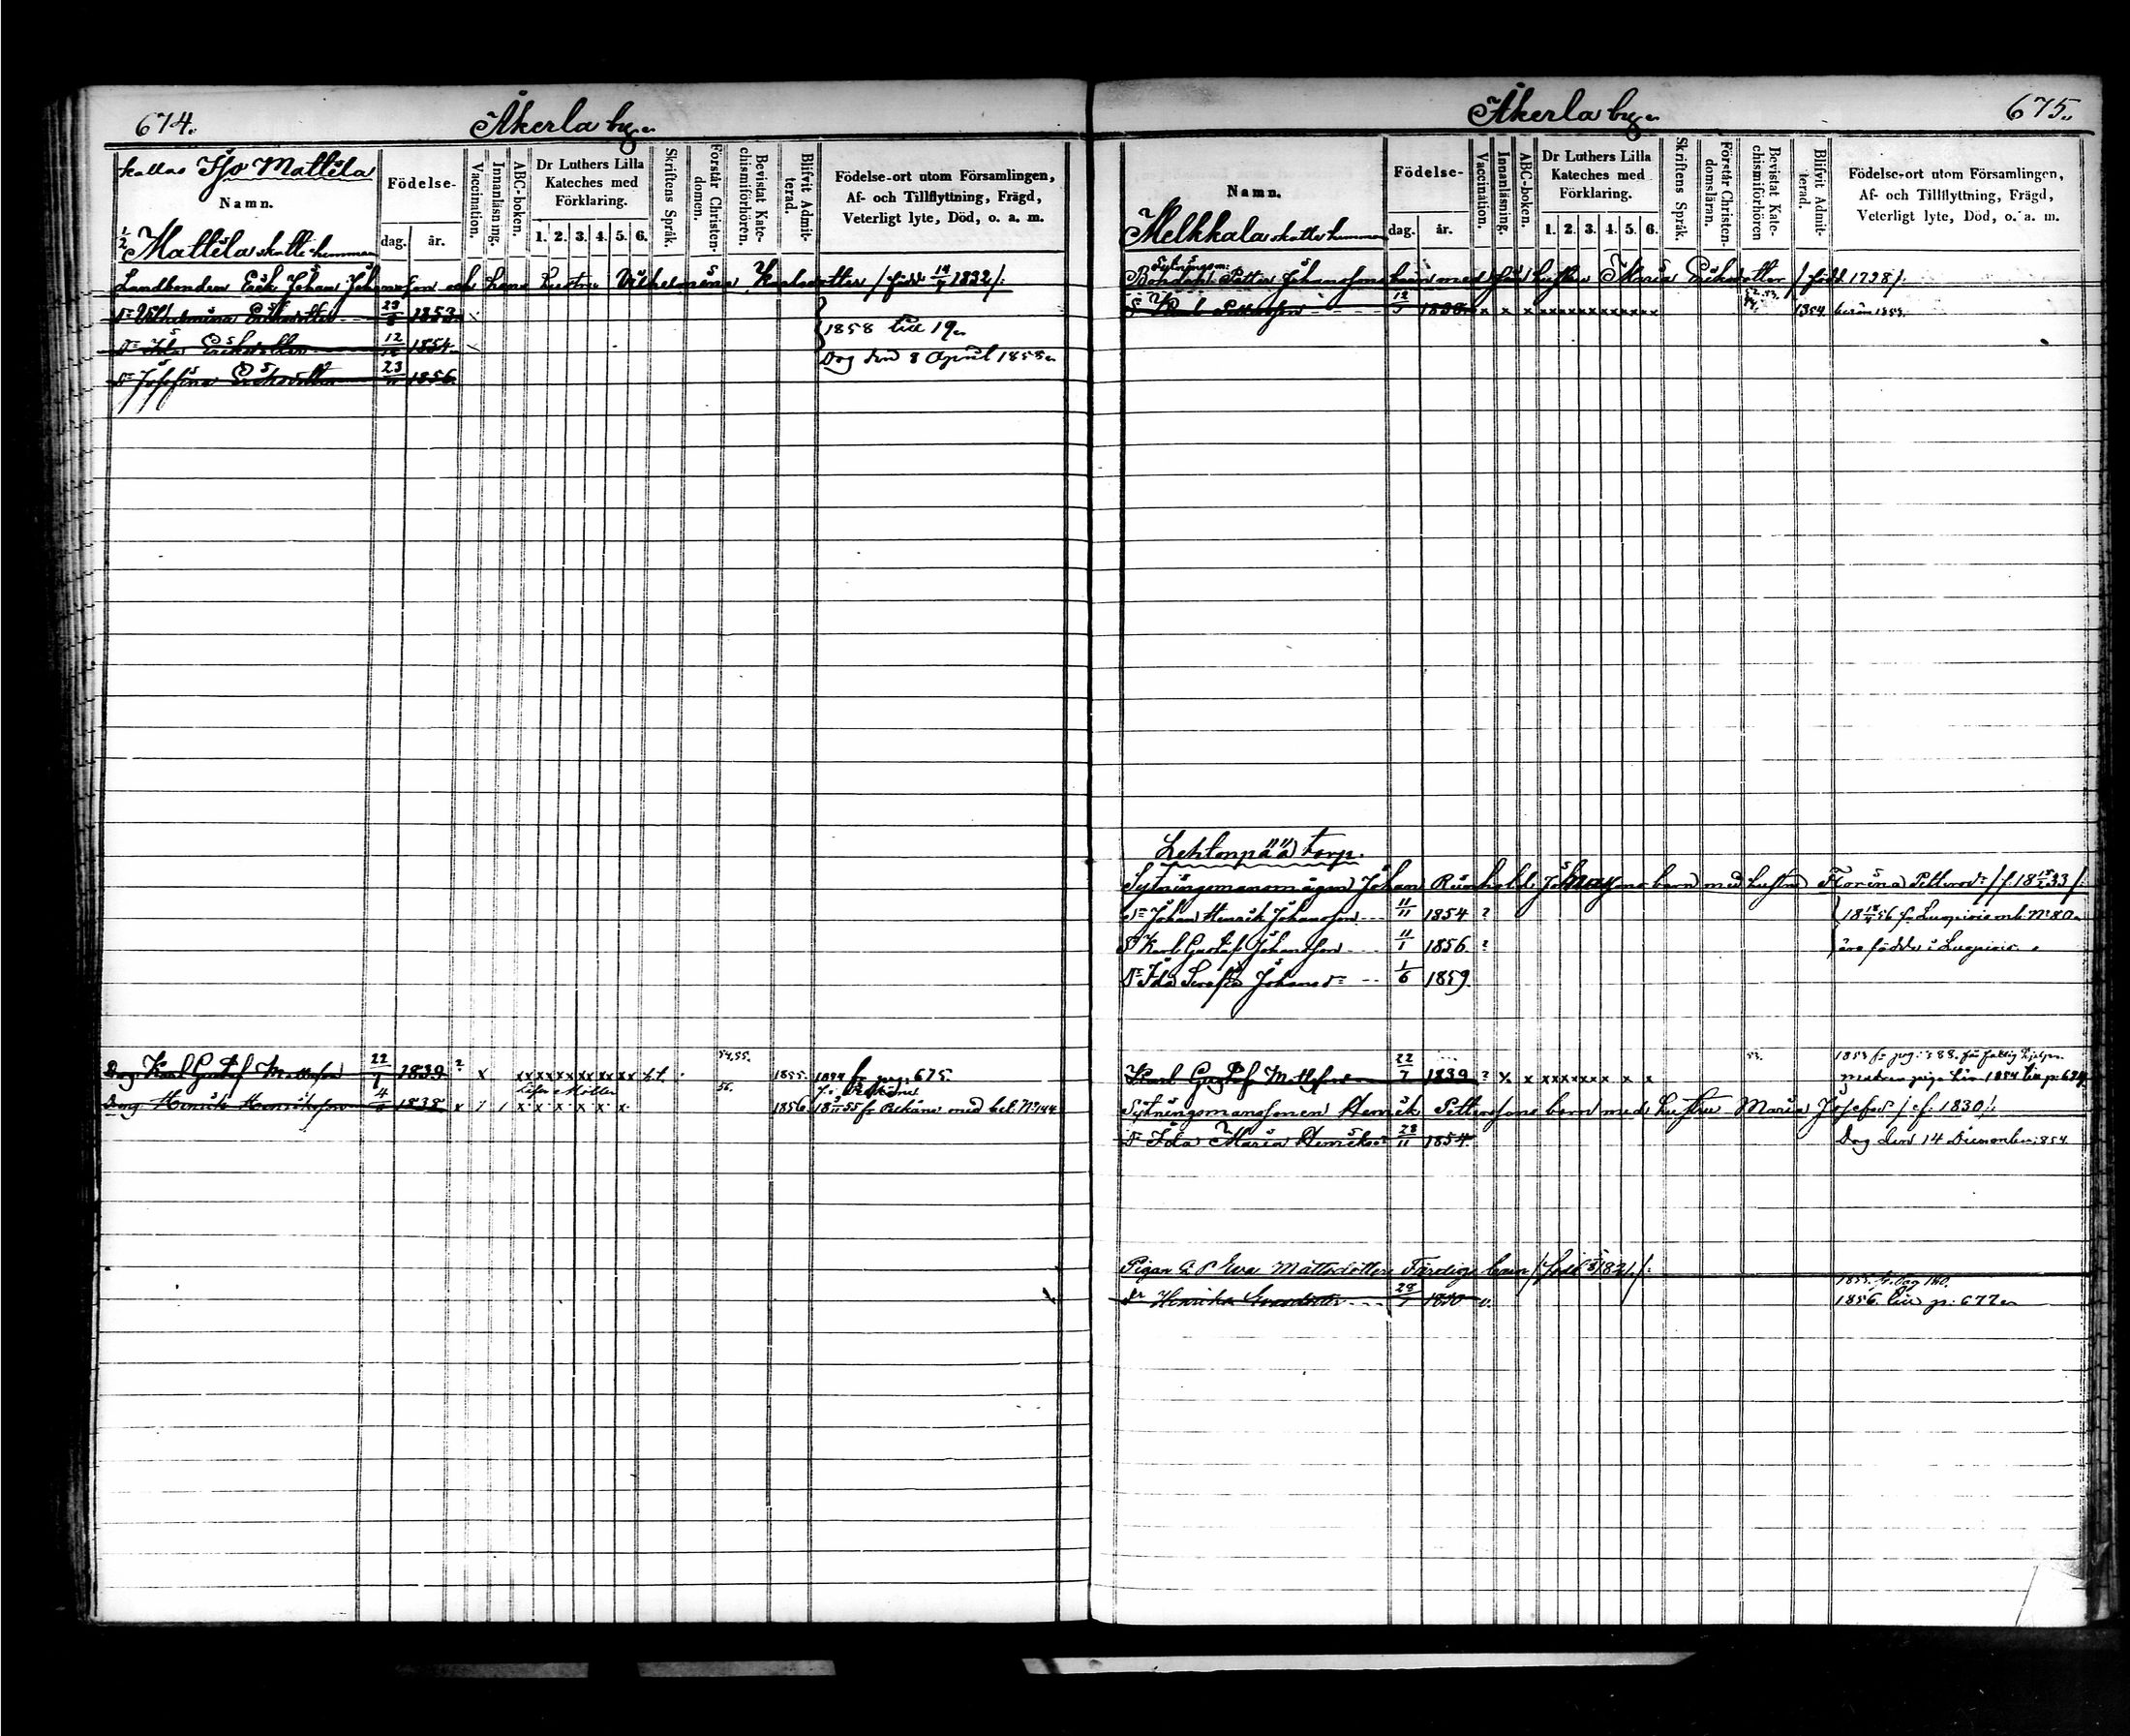 674.
Åkerla by.
kallas Iso Mattila
Namn.
½ Mattila skatte hemman
Födelse-
dag.
år.
Vaccination.
Innanläsning.
ABC-boken.
Dr Luthers Lilla
Kateches med
Förklaring.
1. 2. 3. 4. 5. 6.
Skriftens Språk.
Förstår Christen-
domen.
Bevistat Kate-
chismiförhören.
Blifvit Admit-
terad.
Födelse-ort utom Församlingen,
Af- och Tillflyttning, Frägd,
Veterligt lyte, Död, o. a. m.
Landbonden Erik Johan Johansson och hans hustru Vilhelmina Karlsdotter / född 1832 /:
Dr Vilhelmina Eriksdotter 1853
1858 till 19
Dr Ida Eriksdotter 12 1854
Dog den 8 April 1858
Dr Josefina Eriksdotter 23 1856
54,55.
Drg Karl Gustaf Mattsson 22/7 1839 ? x xx xx xx xx xx xx 1855. 1854 fr pag. 675.
56.
Drg Henrik Henriksson 4 1838 x 7 1 x x x x x x 1856 55 fr Pelkäne med bet. No 144
Åkerla by.
675.
Namn.
Melkkala skatte hemman
Födelse-
dag.
år.
Vaccination.
Innanläsning.
ABC-boken.
Dr Luthers Lilla
Kateches med
Förklaring.
1. 2. 3. 4. 5. 6.
Skriftens Språk.
Förstår Christen-
domsläran.
Bevistat Kate-
chismiförhören
Blifvit Admit-
terad.
Födelse-ort utom Församlingen,
Af- och Tillflyttning, Frägd,
Veterligt lyte, Död, o. a. m.
Sytningsm:
Petter Johanssons barn med hustru Maria Eriksdotter / född 1798 /.
S Karl Pettersson 1838 x x x xxxxxxxxxxxx 1854
Lehtonpää torp.
Sytningsmansmågen Johan Reinhold barn med hustru Florina Pettersdr / f. 18 33 /:
Sn Johan Henrik Johansson 11/11 1854 ? 56 fr. Luopiois mb. No 80
Sn Karl Gustaf Johansson 11/1 1856 ? äro födde i Luopiois
Dr Ida Serafia Johansdr 1/6 1859.
53.
1853 fr pag. 588.
Karl Gustaf Mattsson 22/7 1839 ? x x xxxxxxx x x 1854 till p. 674
Sytningsmanssonen Henrik Petterssons barn med hustru Maria Josefsdr / f. 1830 /.
Dr Ida Maria Henriksdr 28/11 1854 Dog den 14 December 1854
Pigan Eva Mattsdotter barn / född 1821 /:
1855. fr. Pag 160.
Dr Henrika Evasdotter 28 1850 v. 1856 till p. 677